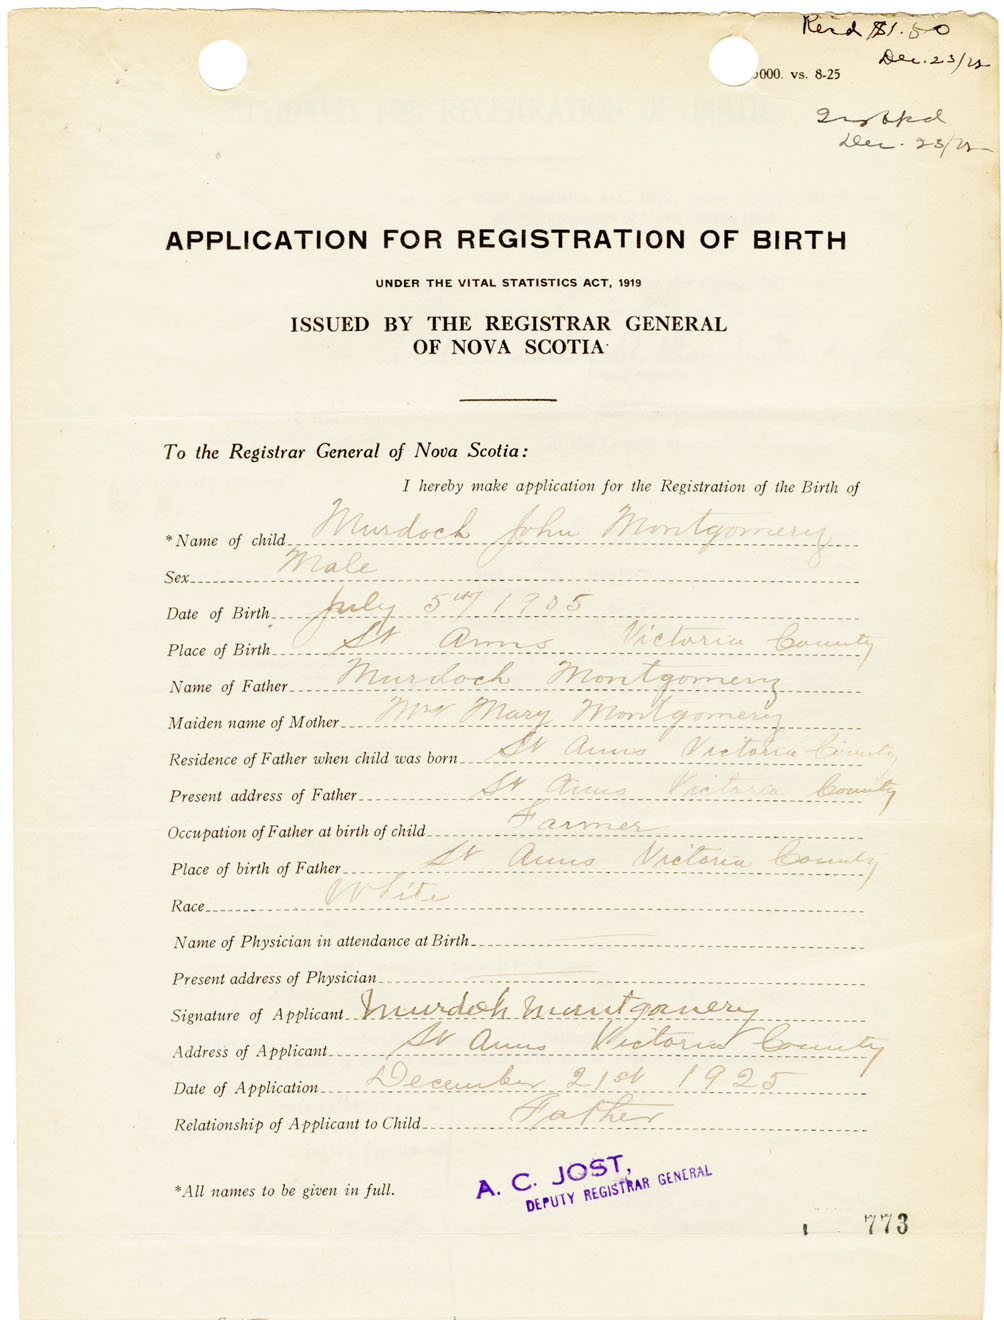 Rec'd $1.50
Dec. 23/25
000. vs. 8-25
Dec. 23/25
APPLICATION FOR REGISTRATION OF BIRTH
UNDER THE VITAL STATISTICS ACT, 1919
ISSUED BY THE REGISTRAR GENERAL
OF NOVA SCOTIA
To the Registrar General of Nova Scotia:
I hereby make application for the Registration of the Birth of
*Name of child Murdoch John Montgomery
Sex Male
Date of Birth July 5th 1905
Place of Birth St Anns Victoria County
Name of Father Murdoch Montgomery
Maiden name of Mother Mrs Mary Montgomery
Residence of Father when child was born St Anns Victoria County
Present address of Father St Anns Victoria County
Occupation of Father at birth of child Farmer
Place of birth of Father St Anns Victoria County
Race White
Name of Physician in attendance at Birth
Present address of Physician
Signature of Applicant Murdoch Montgomery
Address of Applicant St Anns Victoria County
Date of Application December 21st 1925
Relationship of Applicant to Child Father
*All names to be given in full.
A. C. JOST,
DEPUTY REGISTRAR GENERAL
773